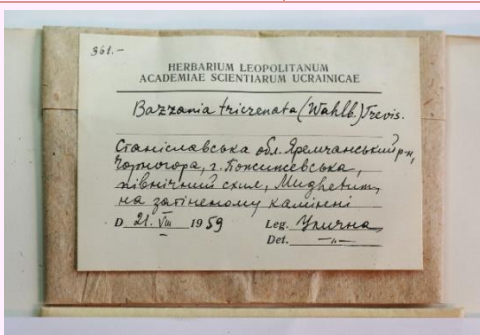 361.-
HERBARIUM LEOPOLITANUM
ACADEMIAE SCIENTIARUM UCRAINICAE
Bazzania tricrenata (Wahlb.) Trevis.
Станіславська обл. Яремчанський р-н,
Чорногора, г. Пожижевська,
північний схил,
на затіненому камінні
D 21. VIII 1959 Leg. Улична
Det. —"—